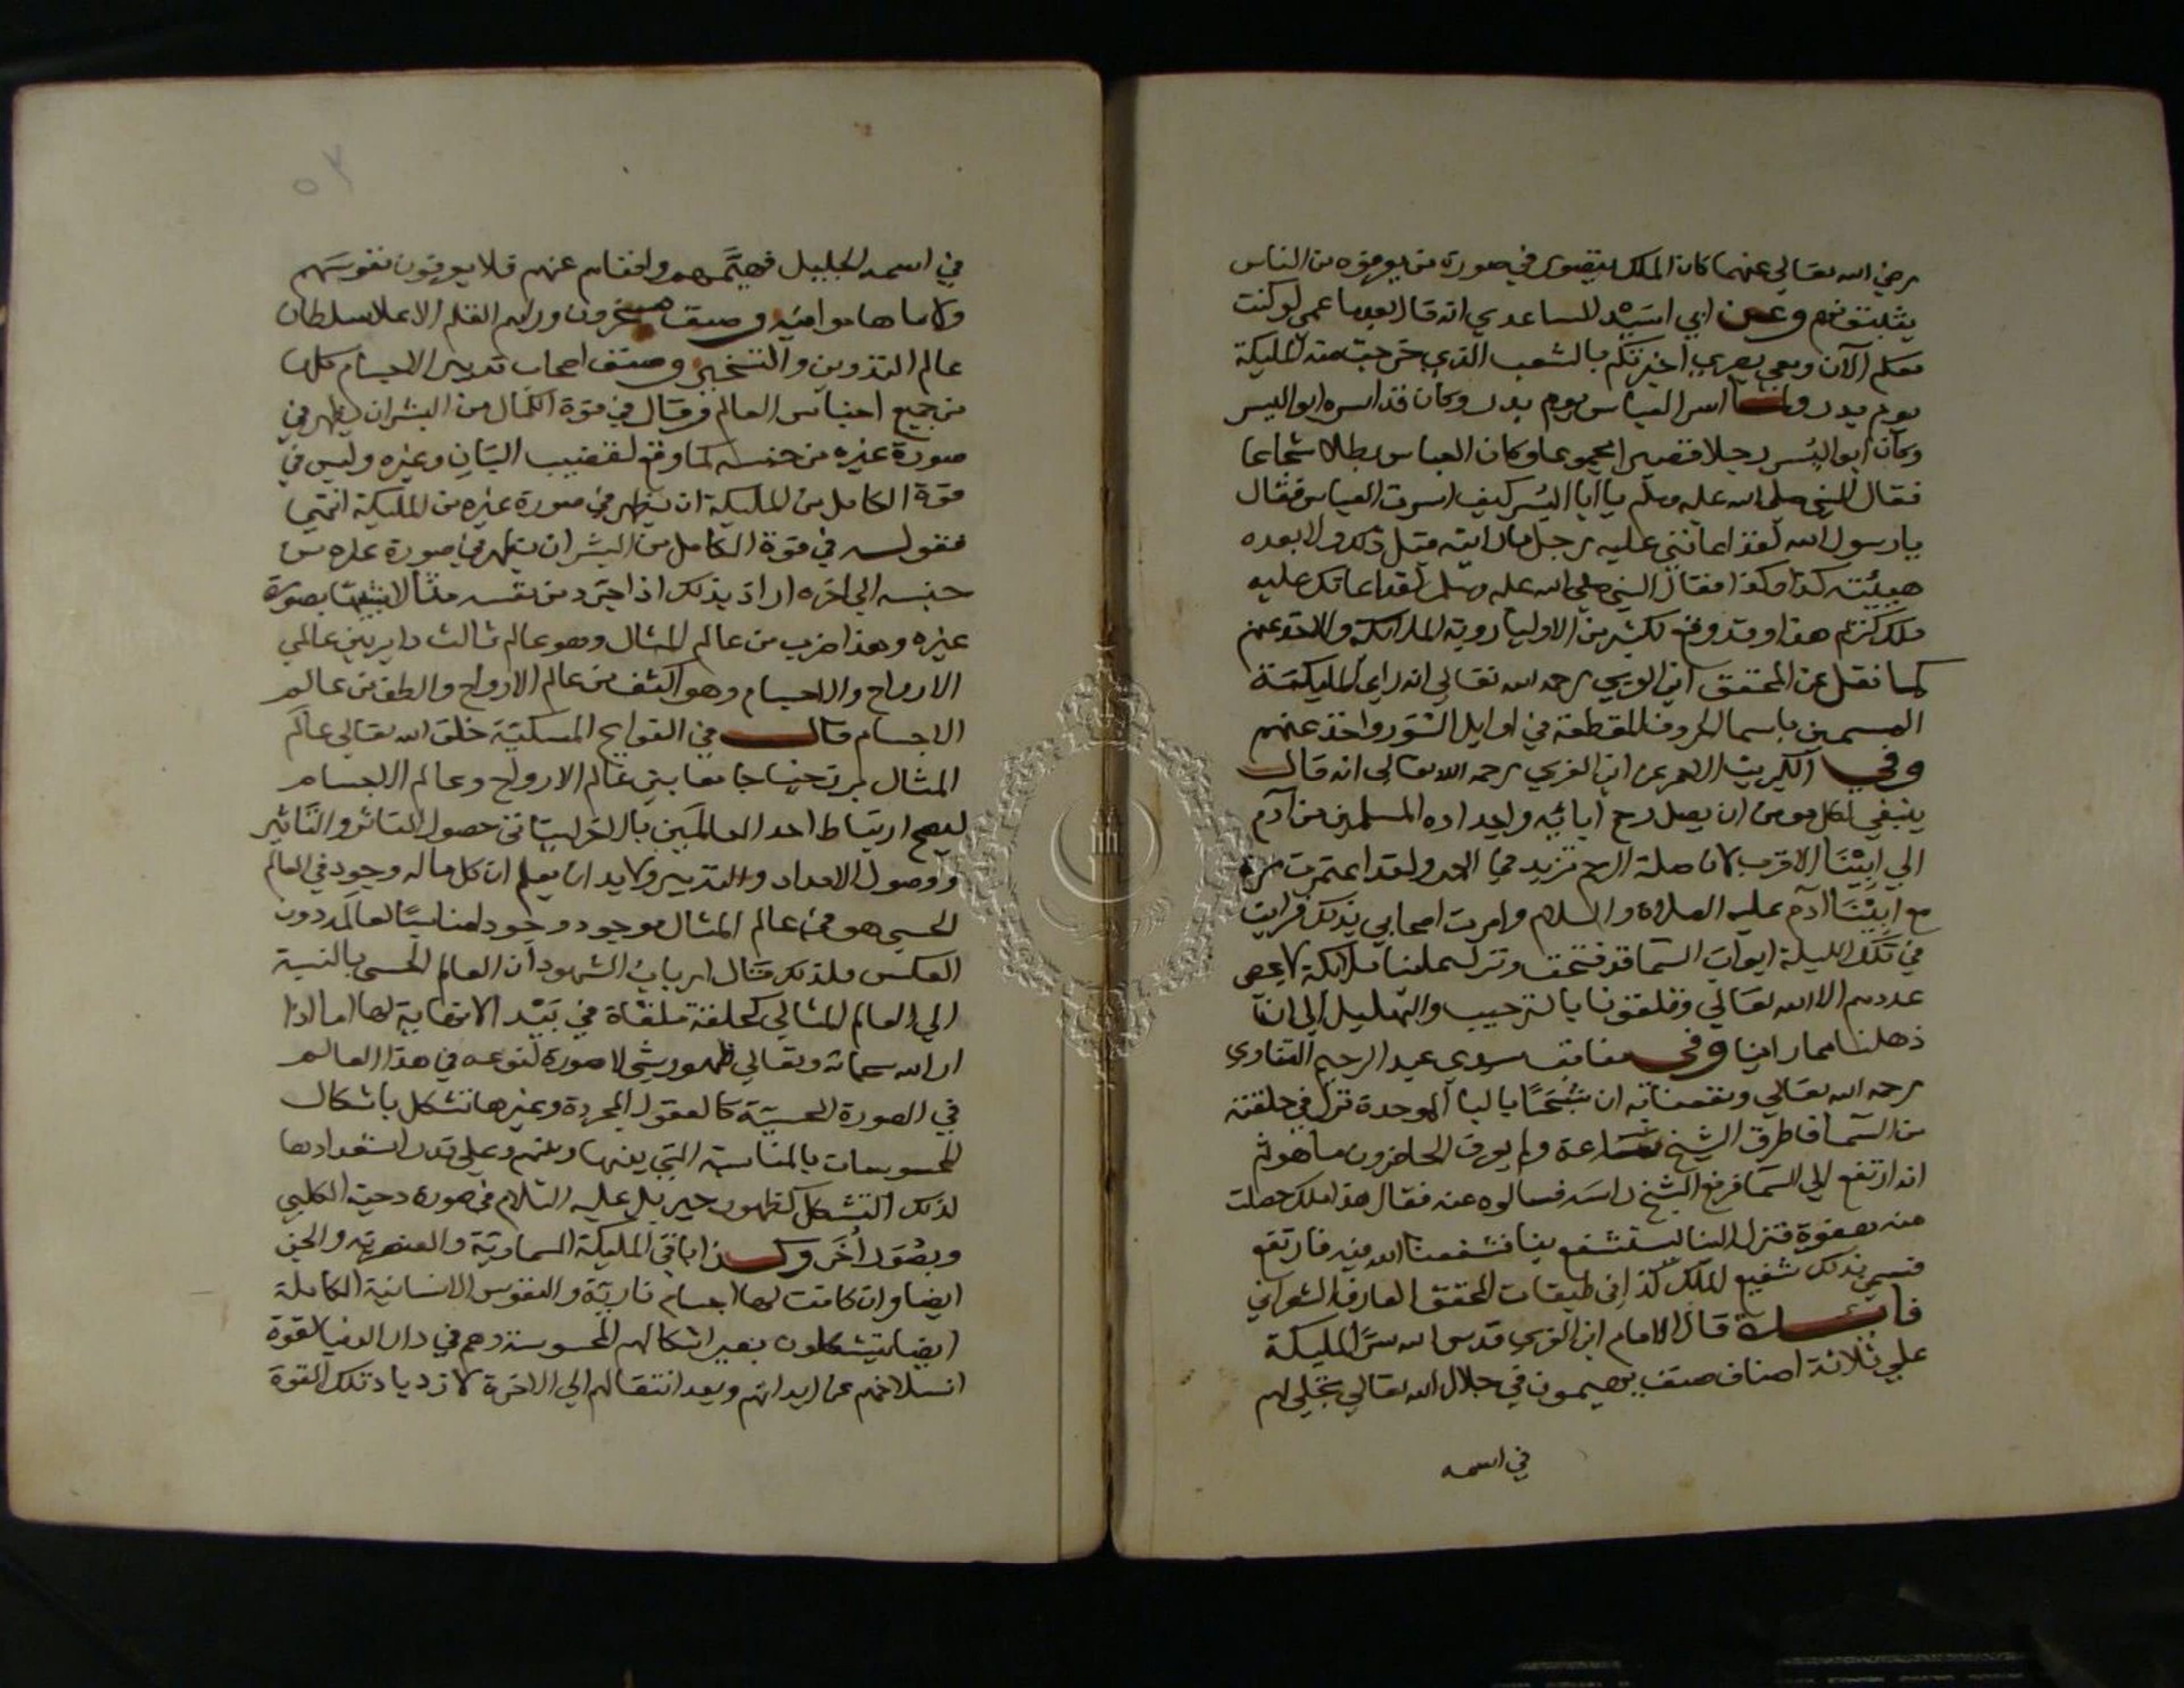 رضي الله تعالي عنهما كان الملك يتصور في صورة من يعرفونه من الناس
يثبتونهم وعن ابي اسيد الساعدي انه قال بعدما عمي لو كنت
معكم الآن ومعي بصري اخبرتكم بالشعب الذي خرجت منه المليكة
يوم بدر ولما اسر العباس يوم بدر وكان قد اسره ابو اليسر
وكان ابو اليُسر رجلا قصيرا مجموعا وكان العباس بطلا شجاعا
فقال النبي صلى الله عليه وسلم يا ابا اليُسر كيف اسرت العباس فقال
يا رسول الله لقد اعانني عليه رجل ما رايته قبل ذلك ولا بعده
هيئته كذا وكذا فقال النبي صلي الله عليه وسلم لقد اعانك عليه
ملك كريم هذا وقد وقع لكثير من الاوليا روية الملائكة والاخذ عنهم
كما نقل عن المحقق ابن العربي رحمه الله تعالي انه راي المليكة
المسمين باسما الحروف المقطعة في اوايل السور واخذ عنهم
وفي الكبريت الاحمر عن ابن العربي رحمه الله تعالي انه قال
ينبغي لكل مومن ان يصل رحم ابائه واجداده المسلمين من آدم
الي ابينا الاقرب لان صلة الرحم تزيد في العمر ولقد اعتمرت مرة
مع ابينا آدم عليه الصلاة والسلام وامرت اصحابي بذلك فرايت
في تلك الليلة ابواب السما قد فتحت ونزلت علينا ملائكة لا يحصى
عددهم الا الله تعالي وتلقونا بالترحيب والتهليل الي ان
ذهلنا مما راينا وفي مناقب سيدي عبد الرحيم القناوي
رحمه الله تعالي ونفعنا به ان شبحًا بالبا الموحدة نزل في حلقته
من السما فاطرق الشيخ ساعة ولم يعرف الحاضرون ما هو ثم
انه ارتفع الي السما فرفع الشيخ راسه فسالوه عنه فقال هذا ملك حصلت
منه هفوة فنزل الينا ليستشفع بنا فشفعنا الله فيه فارتفع
فسمي بذلك شفيع الملك كذا في طبقات المحقق العارف الشعراني
فائدة قال الامام ابن العربي قدس الله سره المليكة
علي ثلاثة اصناف صنف يهيمون في جلال الله تعالي تجلي لهم
في اسمه
في اسمه الجليل فهيَّمهم وافناهم عنهم فلا يعرفون نفوسهم
ولا ما هاموا فيه وصنف مسخرون وراسهم القلم الاعلا سلطان
عالم التدوين والتسخير وصنف اصحاب تدبير الاجسام كلها
من جميع اجناس العالم وقال في قوة الكمال من البشر ان يظهر في
صورة غيره من جنسه كما وقع لقضيب البان وغيره وليس في
قوة الكامل من المليكة ان يظهر في صورة غيره من المليكة انتهي
فقوله في قوة الكامل من البشر ان يظهر في صورة غيره من
جنسه الي اخره اراد بذلك اذا جرد من نفسه مثالا بصورة
غيره وهذا ضرب من عالم المثال وهو عالم ثالث داير بين عالمي
الارواح والاجسام وهو اكثف من عالم الارواح والطف من عالم
الاجسام قال في الفوايح المسكية خلق الله تعالي عالم
المثال برزخيا جامعا بين عالم الارواح وعالم الاجسام
ليصح ارتباط احد العالمين بالاخر ليتاتى حصول التاثر والتاثير
ووصول الامداد والتدبير ولا بد ان يعلم ان كل ما له وجود في العالم
الحسي هو في عالم المثال موجود وجودا مناسبًا لعالمه دون
العكس ولذلك قال ارباب الشهود ان العالم الحسي بالنسبة
الي العالم المثالي كحلقة ملقاة في بيد لا نهاية لها اما اذا
اراد الله سبحانه وتعالي ظهور شي لا صورة لنوعه في هذا العالم
في الصورة الحسية كالعقول المجردة وغيرها تشكل باشكال
المحسوسات بالمناسبة التي بينها وبينهم وعلي قدر استعدادها
لذلك التشكل كظهور جبريل عليه السلام في صورة دحية الكلبي
وبصور اُخَر وكذا باقي المليكة السماوية والعنصرية والجن
ايضا وان كانت لها اجسام نارية والنفوس الانسانية الكاملة
ايضا يتشكلون بغير اشكالهم المحسوسة وهم في دار الدنيا لقوة
انسلاخهم عن ابدانهم وبعد انتقالهم الي الاخرة لازدياد تلك القوة